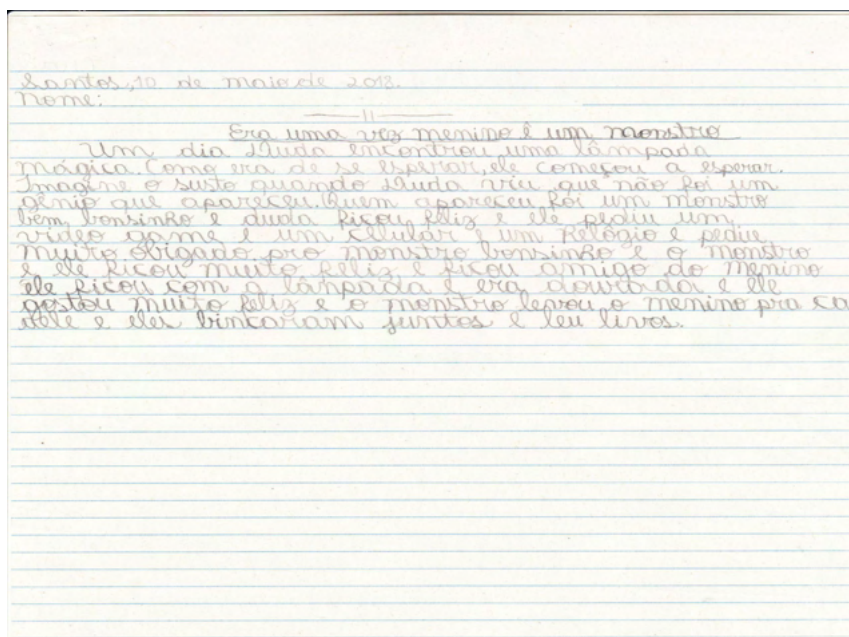 Santos, 10 de maio de 2013.
Nome:
Era uma vez menino e um monstro
Um dia Duda encontrou uma lâmpada
mágica. Como era de se esperar, ele começou a esperar.
Imagine o susto quando Duda viu que não foi um
gênio que apareceu. Quem apareceu foi um monstro
bem bonsinho e duda ficou feliz e ele pediu um
video game e um celular e um relógio e pediu
muito obigado pro monstro bonsinho e o monstro
e ele ficou muito feliz e ficou amigo do menino
ele ficou com a lâmpada e era dourada e ele
gostou muito feliz e o monstro levou o menino pra ca
dele e eles bincaram juntos e leu livros.